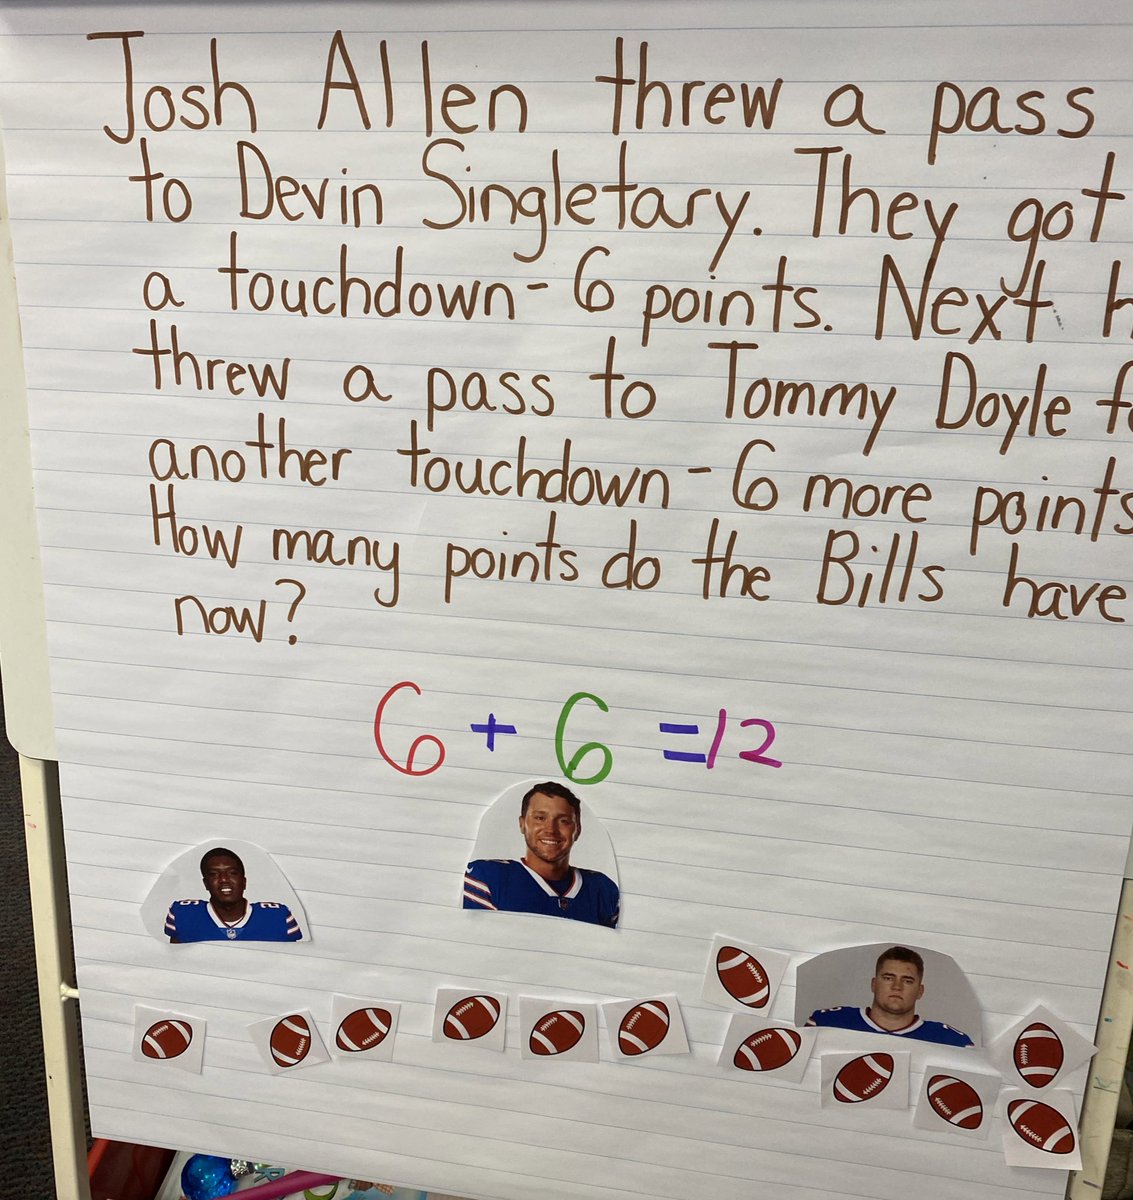 Josh Allen threw a pass
to Devin Singletary. They got
a touchdown - 6 points. Next h
threw a pass to Tommy Doyle f
another touchdown - 6 more points
How many points do the Bills have
now?
6 + 6 = 12